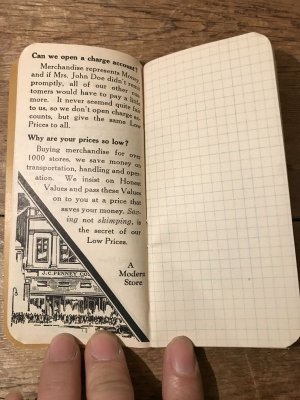 Can we open a charge account?
Merchandise represents Money
and if Mrs. John Doe didn't remit
promptly, all of our other cus-
tomers would have to pay a little
more. It never seemed quite fair
to us, so we don't open charge ac-
counts, but give the same Low
Prices to all.
Why are your prices so low?
Buying merchandise for over
1000 stores, we save money on
transportation, handling and oper-
ation. We insist on Honest
Values and pass these Values
on to you at a price that
saves your money. Sav-
ing not skimping, is
the secret of our
Low Prices.
A
Modern
Store
J.C. PENNEY CO.